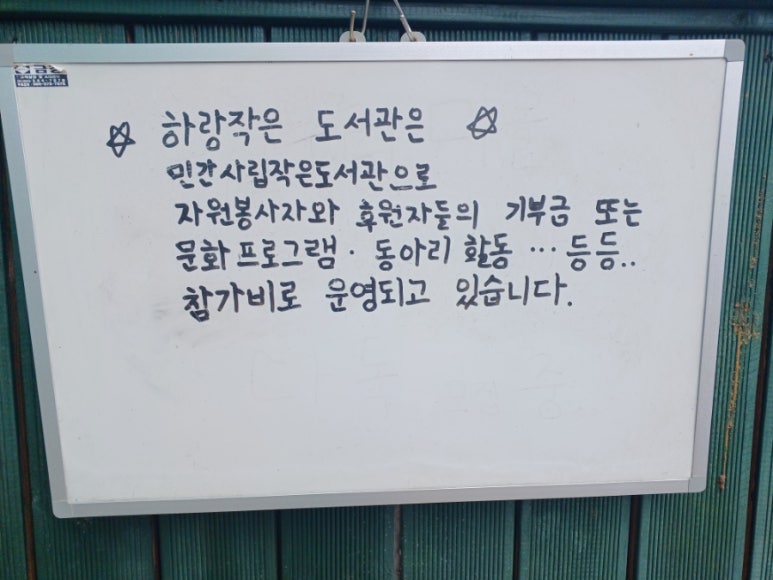 ☆ 하랑작은 도서관은 ☆
민간사립작은도서관으로
자원봉사자와 후원자들의 기부금 또는
문화프로그램 · 동아리 활동 ... 등등..
참가비로 운영되고 있습니다.